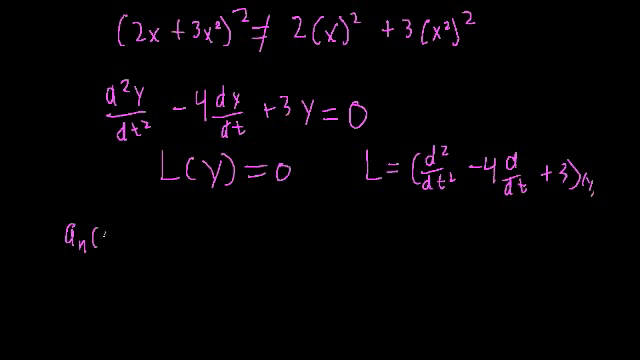 (2x + 3x²)² ≠ 2(x)² + 3(x²)²
d²y/dt² - 4 dy/dt + 3y = 0
L(y) = 0    L = (d²/dt² - 4 d/dt + 3)(y)
aₙ(